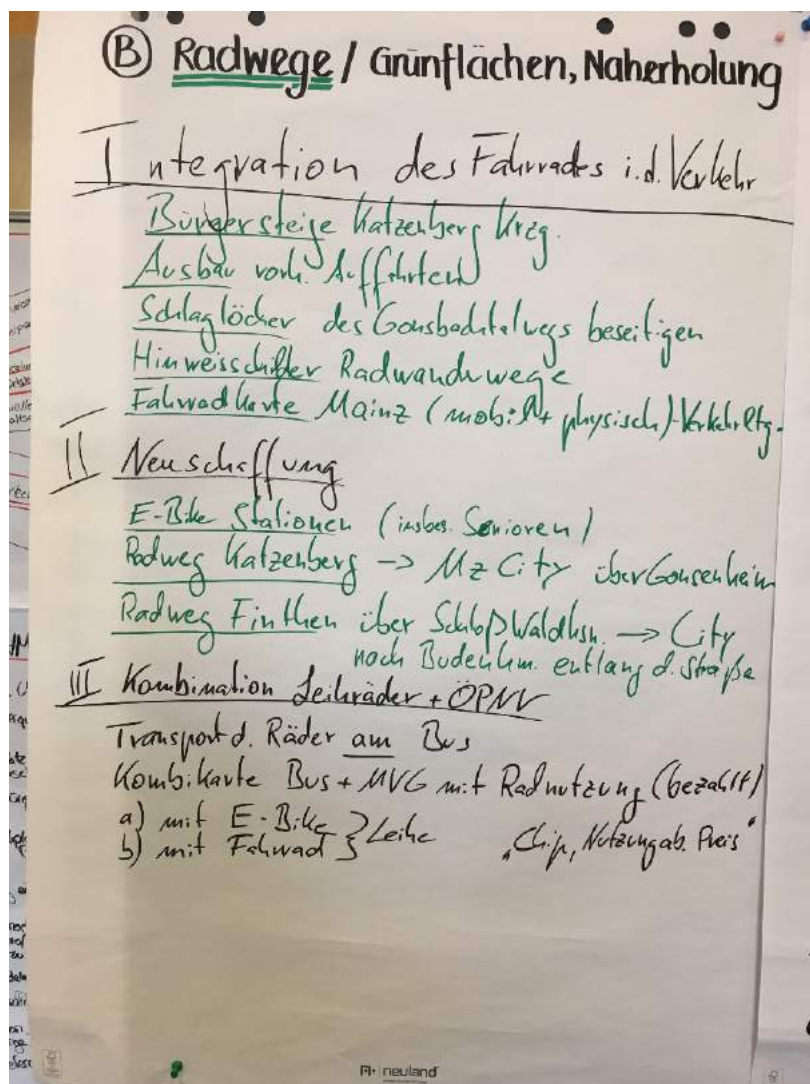 B Radwege / Grünflächen, Naherholung
I Integration des Fahrrades i.d. Verkehr
Bürgersteige Katzenberg Krzg.
Ausbau vorh. Auffahrten
Schlaglöcher des Gonsbachtalwegs beseitigen
Hinweisschilder Radwanderwege
Fahrradkarte Mainz (mobil + physisch) - Verkehrltg.
II Neuschaffung
E-Bike Stationen (insbes. Senioren)
Radweg Katzenberg -> Mz City über Gonsenheim
Radweg Finthen über Schloß Waldhsn. -> City
nach Budenhm. entlang d. Straße
III Kombination Leihräder + ÖPNV
Transport d. Räder am Bus
Kombikarte Bus + MVG mit Radnutzung (bezahlt)
a) mit E-Bike } Leihe
b) mit Fahrrad „Chip, Nutzungab. Preis"
neuland